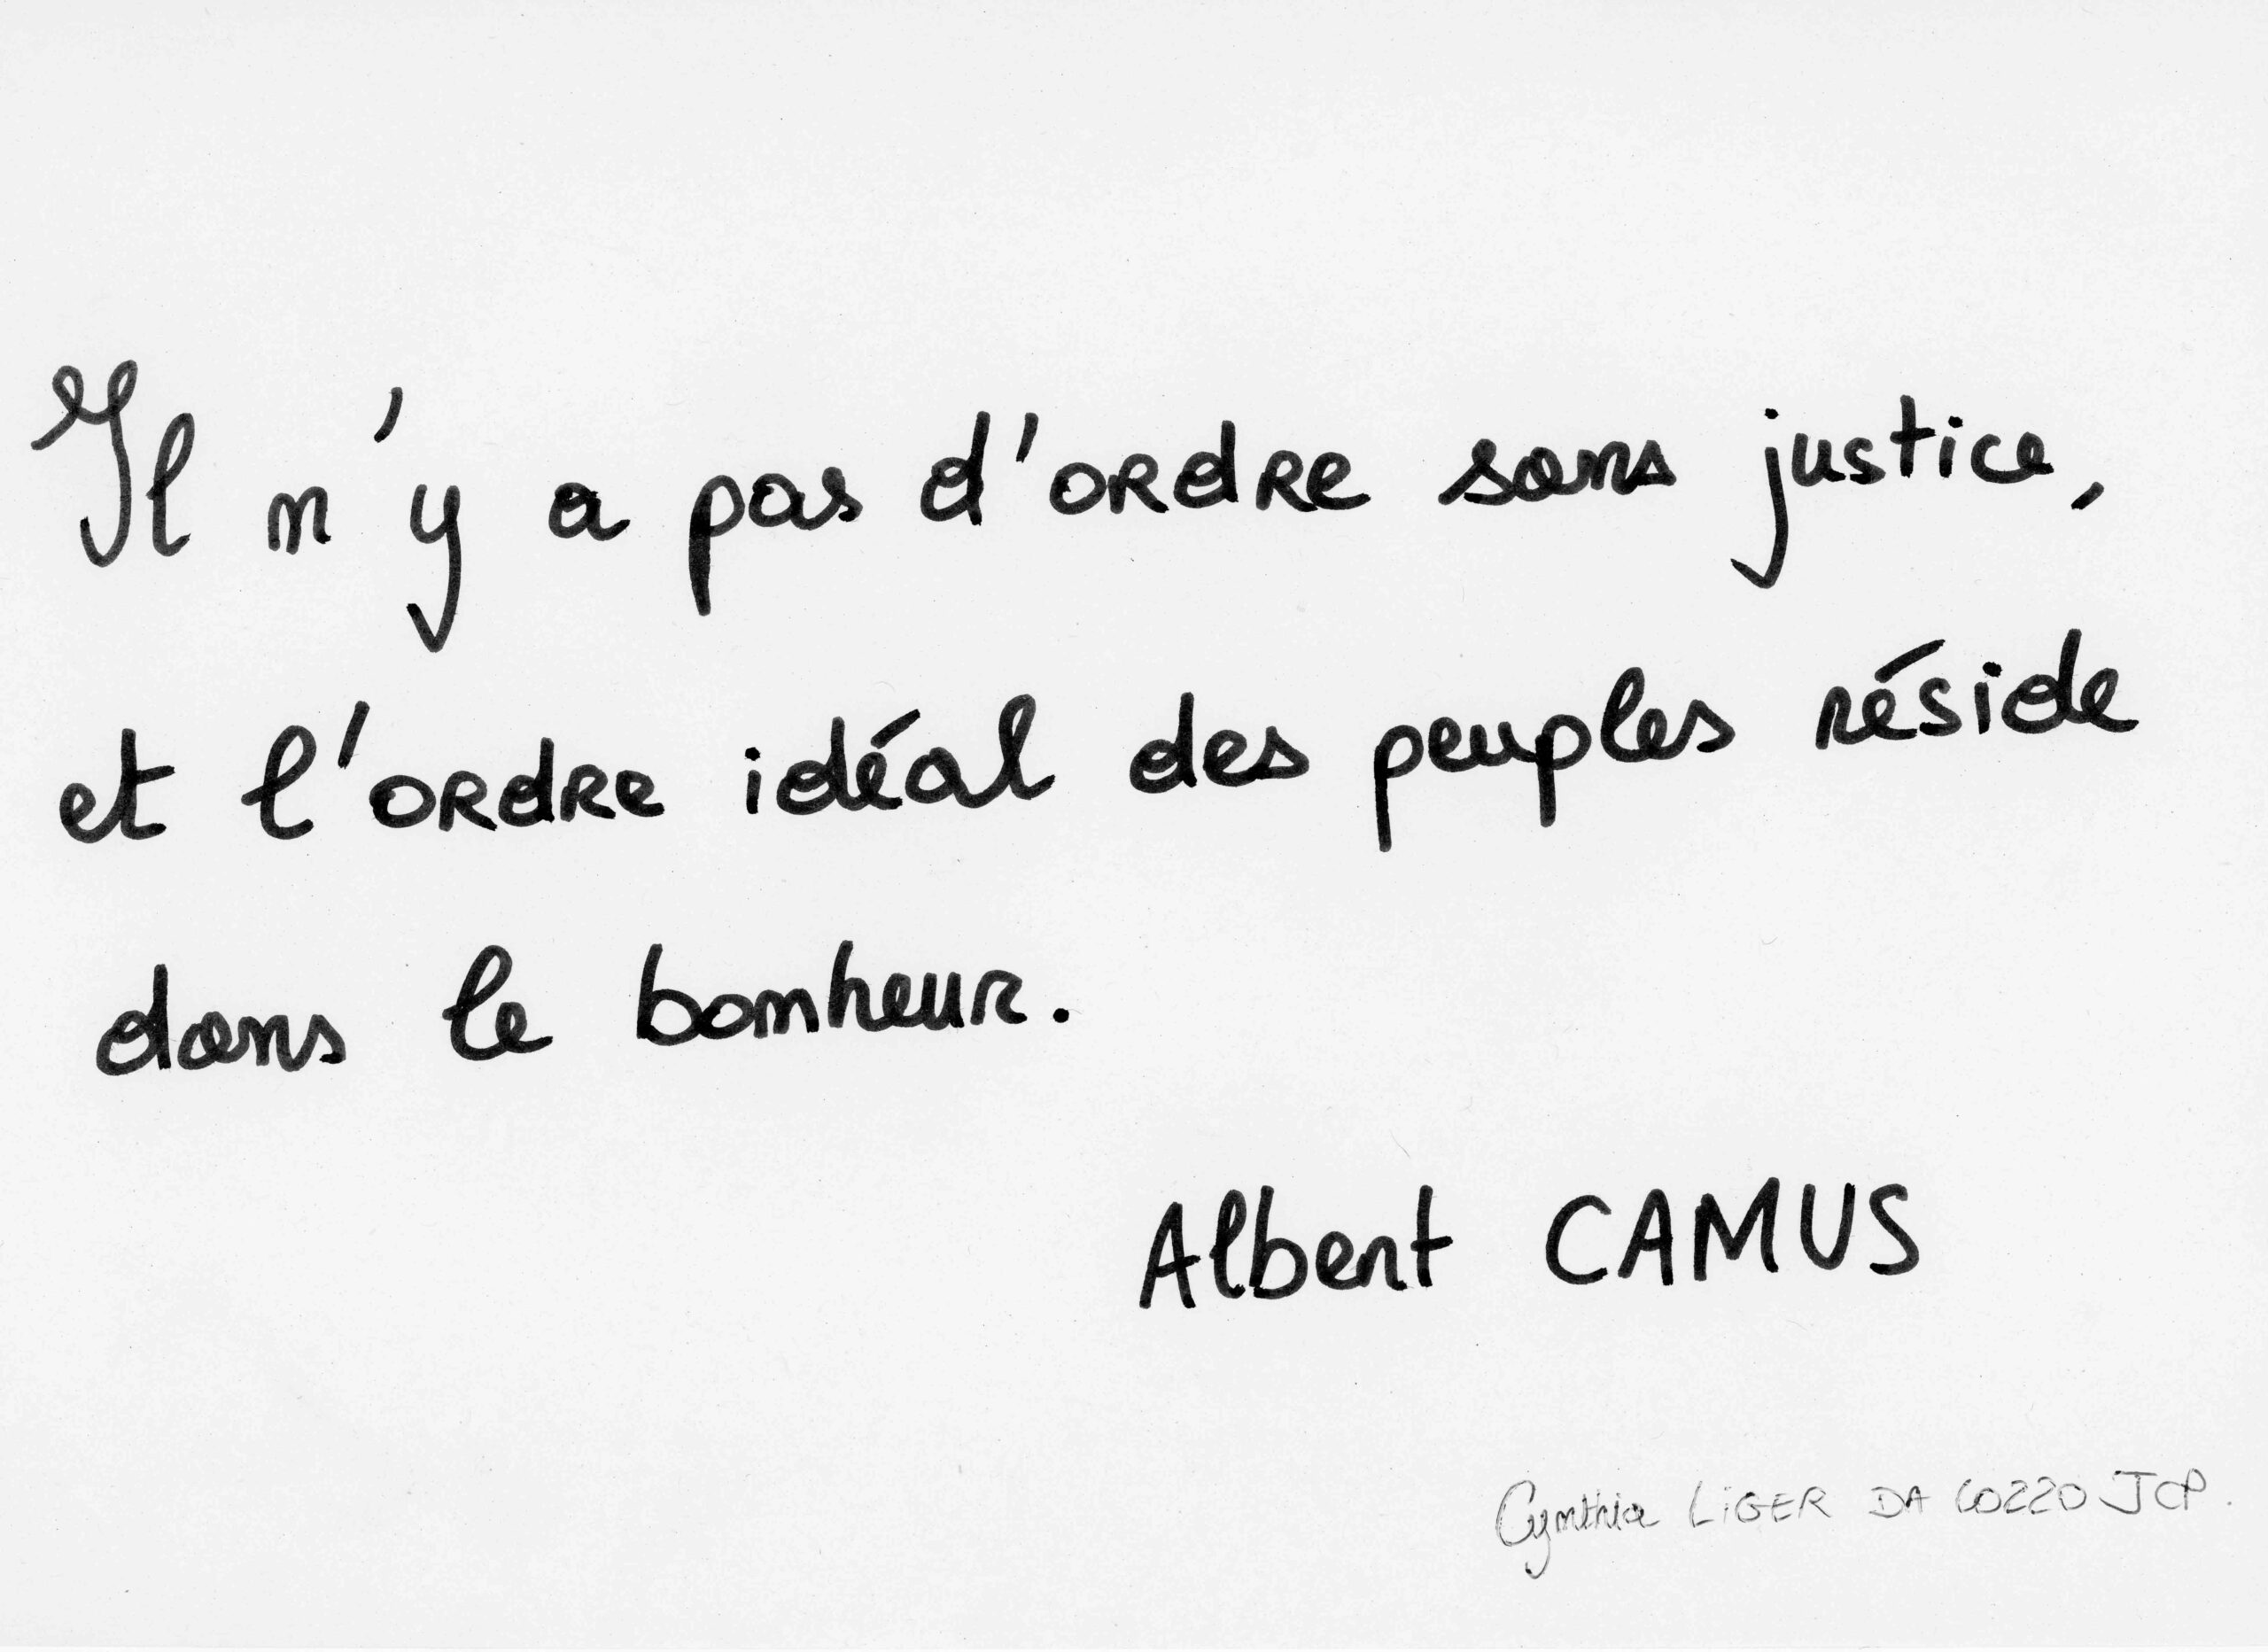 Il n'y a pas d'ordre sans justice,
et l'ordre idéal des peuples réside
dans le bonheur.
Albert CAMUS
Cynthia LIGER DA COZZO JCP.